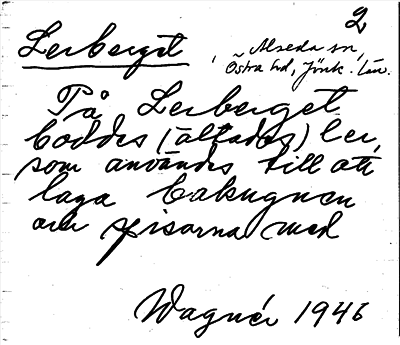 2
Lerberget, Alseda sn,
Östra hd, Jönk. län.
På Lerberget
boddes (=ältades) ler,
som användes till att
laga bakugnen
och spisarna med
Wagnér 1946